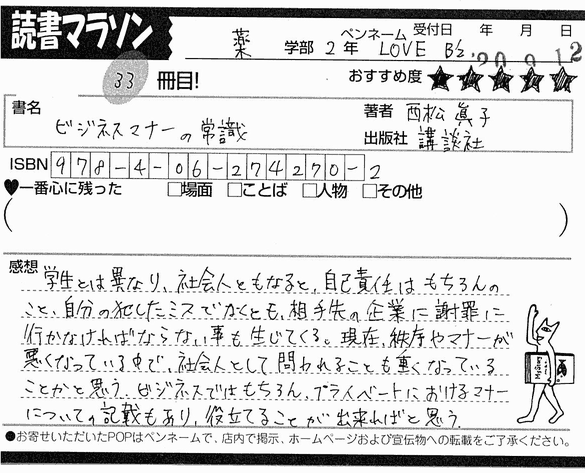 読書マラソン
薬 学部 2年 ペンネーム LOVE B'z 受付日 年 月 日
33 冊目! おすすめ度 ★★★★★
書名 ビジネスマナーの常識
著者 西松 眞子
出版社 講談社
ISBN 978-4-06-274270-2
♥一番心に残った □場面 □ことば □人物 □その他
( )
感想
学生とは異なり、社会人ともなると、自己責任はもちろんの
こと、自分の犯したミスでなくとも、相手先の企業に謝罪に
行かなければならない事も生じてくる。現在、秩序やマナーが
悪くなっている中で、社会人として問われることも重くなっている
ことかと思う。ビジネスではもちろん、プライベートにおけるマナー
についての記載もあり、役立てることが出来ればと思う。
●お寄せいただいたPOPはペンネームで、店内で掲示、ホームページおよび宣伝物への転載をご了承ください。